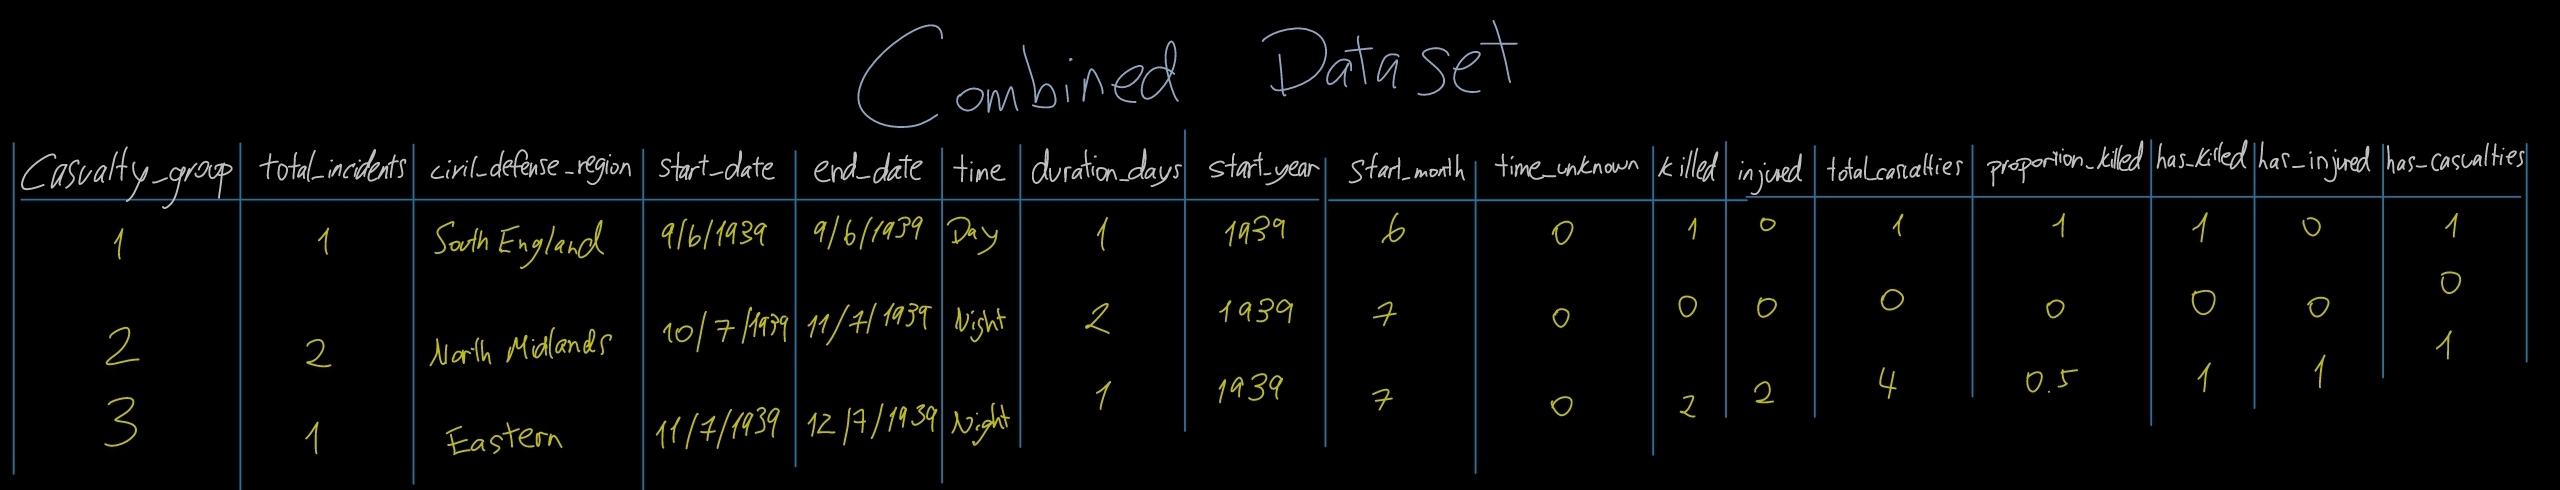 Combined Dataset
Casualty_group total_incidents civil_defense_region start_date end_date time duration_days start_year start_month time_unknown killed injured total_casualties proportion_killed has_killed has_injured has_casualties
1 1 South England 9/6/1939 9/6/1939 Day 1 1939 6 0 1 0 1 1 1 0 1
2 2 North Midlands 10/7/1939 11/7/1939 Night 2 1939 7 0 0 0 0 0 0 0 0
3 1 Eastern 11/7/1939 12/7/1939 Night 1 1939 7 0 2 2 4 0.5 1 1 1